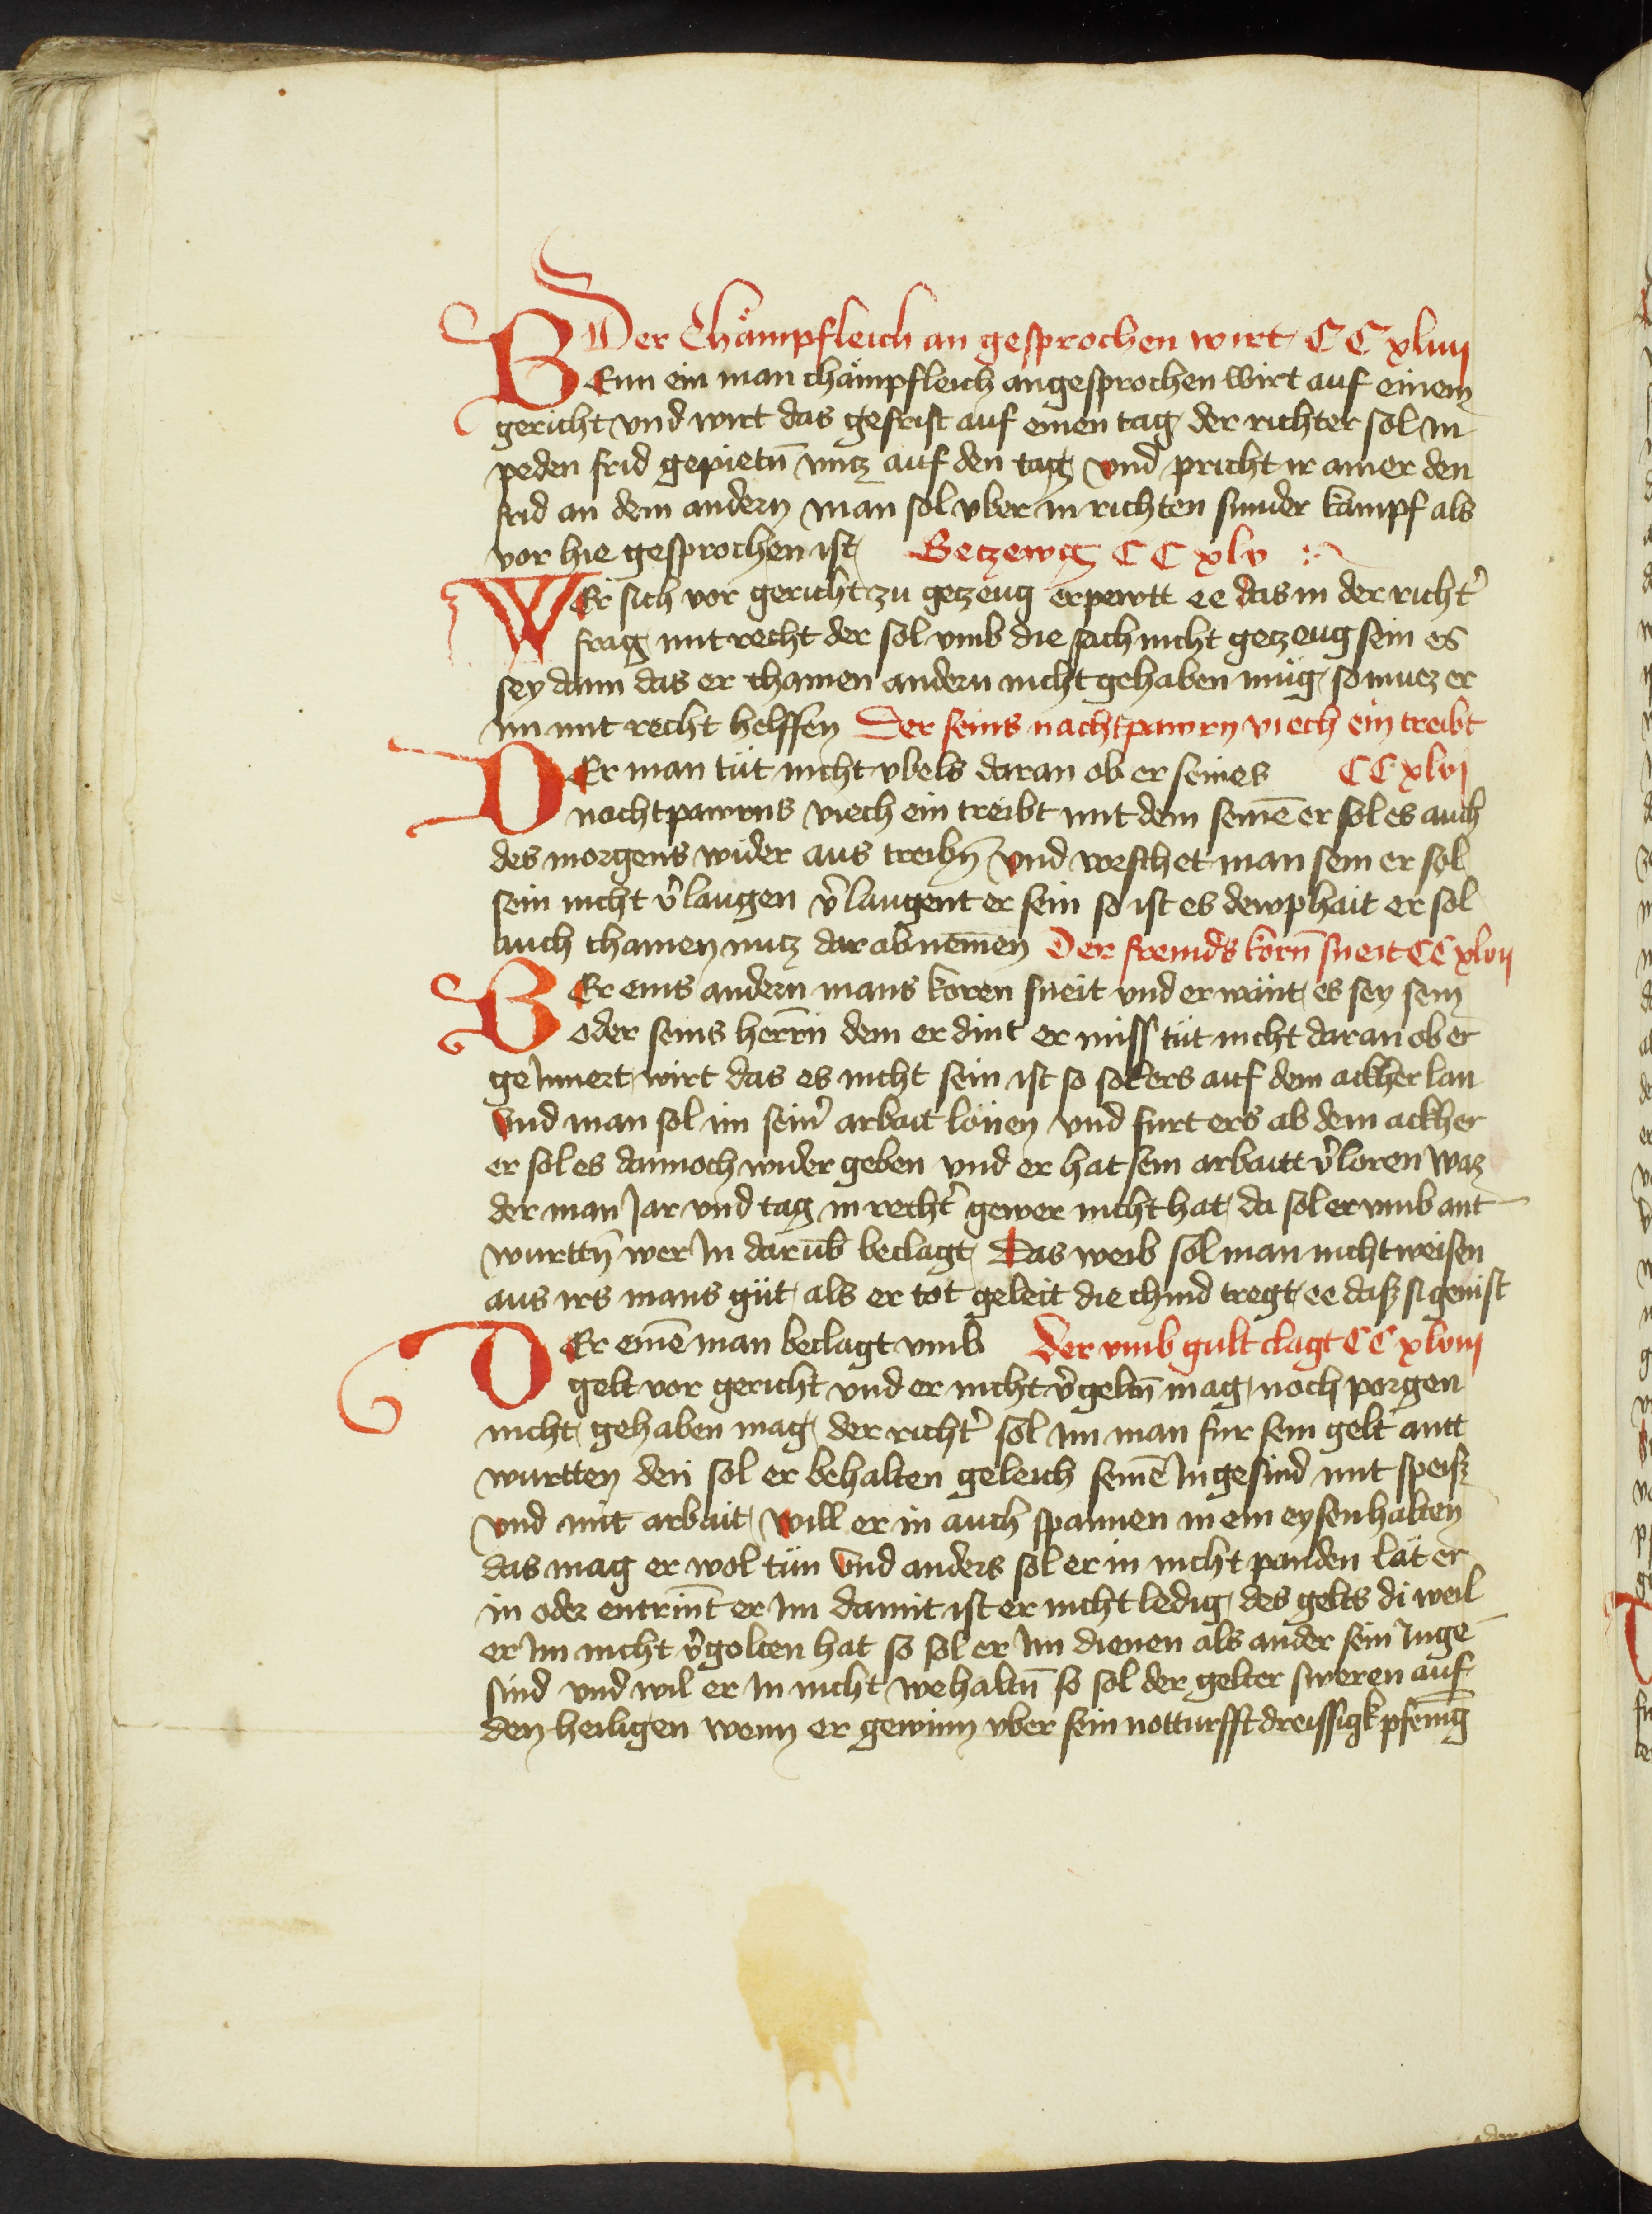 Der Chämpfleich an gesprochen wirt CC xliiij
BEnn ein man chämpfleich angesprochen wirt auf einem
gericht vnd wirt das gefrist auf einen tag der richter sol in
peden frid gepietn̄ vntz auf den tag vnd pricht ir ainer den
frid an dem andern man sol vber in richten sunder kampf als
vor hie gesprochen ist Getzewg CC xlv
WEr sich vor gericht zu getzeug erpewtt ee das in der richt̉
frag mit recht der sol vmb die sach nicht getzeug sein es
sey dann das er chainen andern nicht gehaben müg so muez er
im mit recht helffen Der seins nachtpawrn viech ein treibt
DEr man tüt nicht vbels daran ob er seines CC xlvj
nachtpawrns viech ein treibt mit dem seinē er sol es auch
des morgens wider aus treibn̄ vnd vorschet man sein er sol
sein nicht v̉laugen v̉laugent er sein so ist es dewphait er sol
auch chainen nutz dar ab nemen Der fremds korn̄ sneit CC xlvij
BEr eins andern mans koren sneit vnd er wänt es sey sein
oder seins herrn̄ dem er dint er miss tüt nicht daran ob er
geInnert wirt das es nicht sein ist so sol ers auf dem ackher lan
vnd man sol im sein̉ arbait lönen vnd furt ers ab dem ackher
er sol es dannoch wider geben vnd er hat sein arbaitt v̉loren Waz
der man Jar vnd tag in recht̉ gewer nicht hat da sol er vmb ant
wurttn̄ wer In darūb beclagt Das weib sol man nicht weisen
aus irs mans güt als er tot geleit die chind tregt ee dasz si genist
DEr einē man beclagt vmb Der vmb gult clagt CC xlviij
gelt vor gericht vnd er nicht v̉geltn̄ mag noch porgen
nicht gehaben mag der richt̉ sol im man fur sein gelt antt
wurtten den sol er behalten geleich seinē Ingesind mit speisz
vnd mit arbait will er in auch spannen in ein eysenhalten
das mag er wol tün vnd anders sol er in nicht panden lät er
in oder entrint er Im damit ist er nicht ledig des gelts di weil
er Im nicht v̉golten hat so sol er Im dienen als ander sein Inge
sind vnd wil er In nicht wehaltn̄ so sol der gelter sweren auf
den heiligen wenn er gewinn vber sein notturfft dreissigk pfenīg